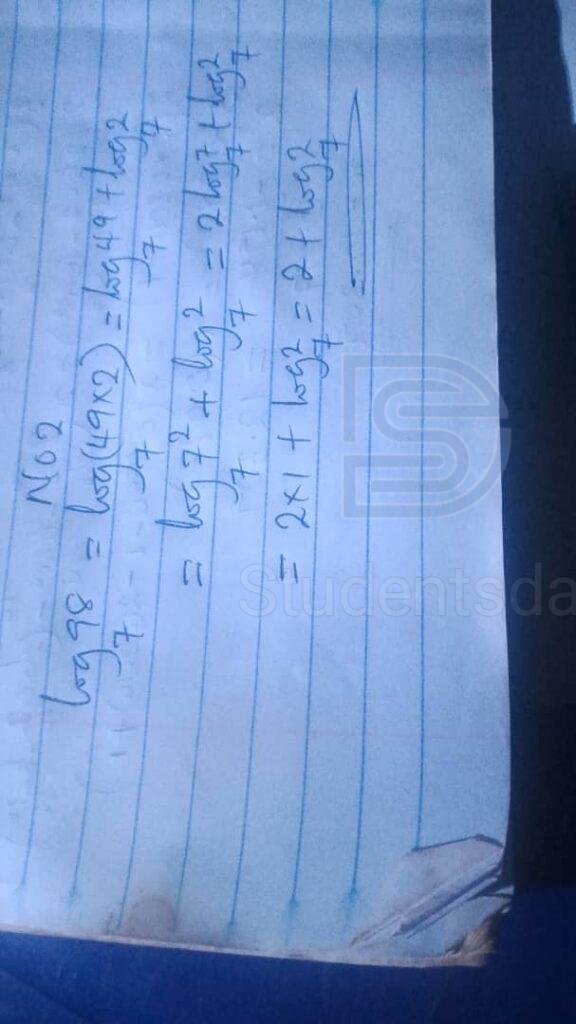 No 2
log₇98 = log₇(49×2) = log₇49 + log₇2
= log₇7² + log₇2 = 2log₇7 + log₇2
= 2×1 + log₇2 = 2 + log₇2
Studentsda